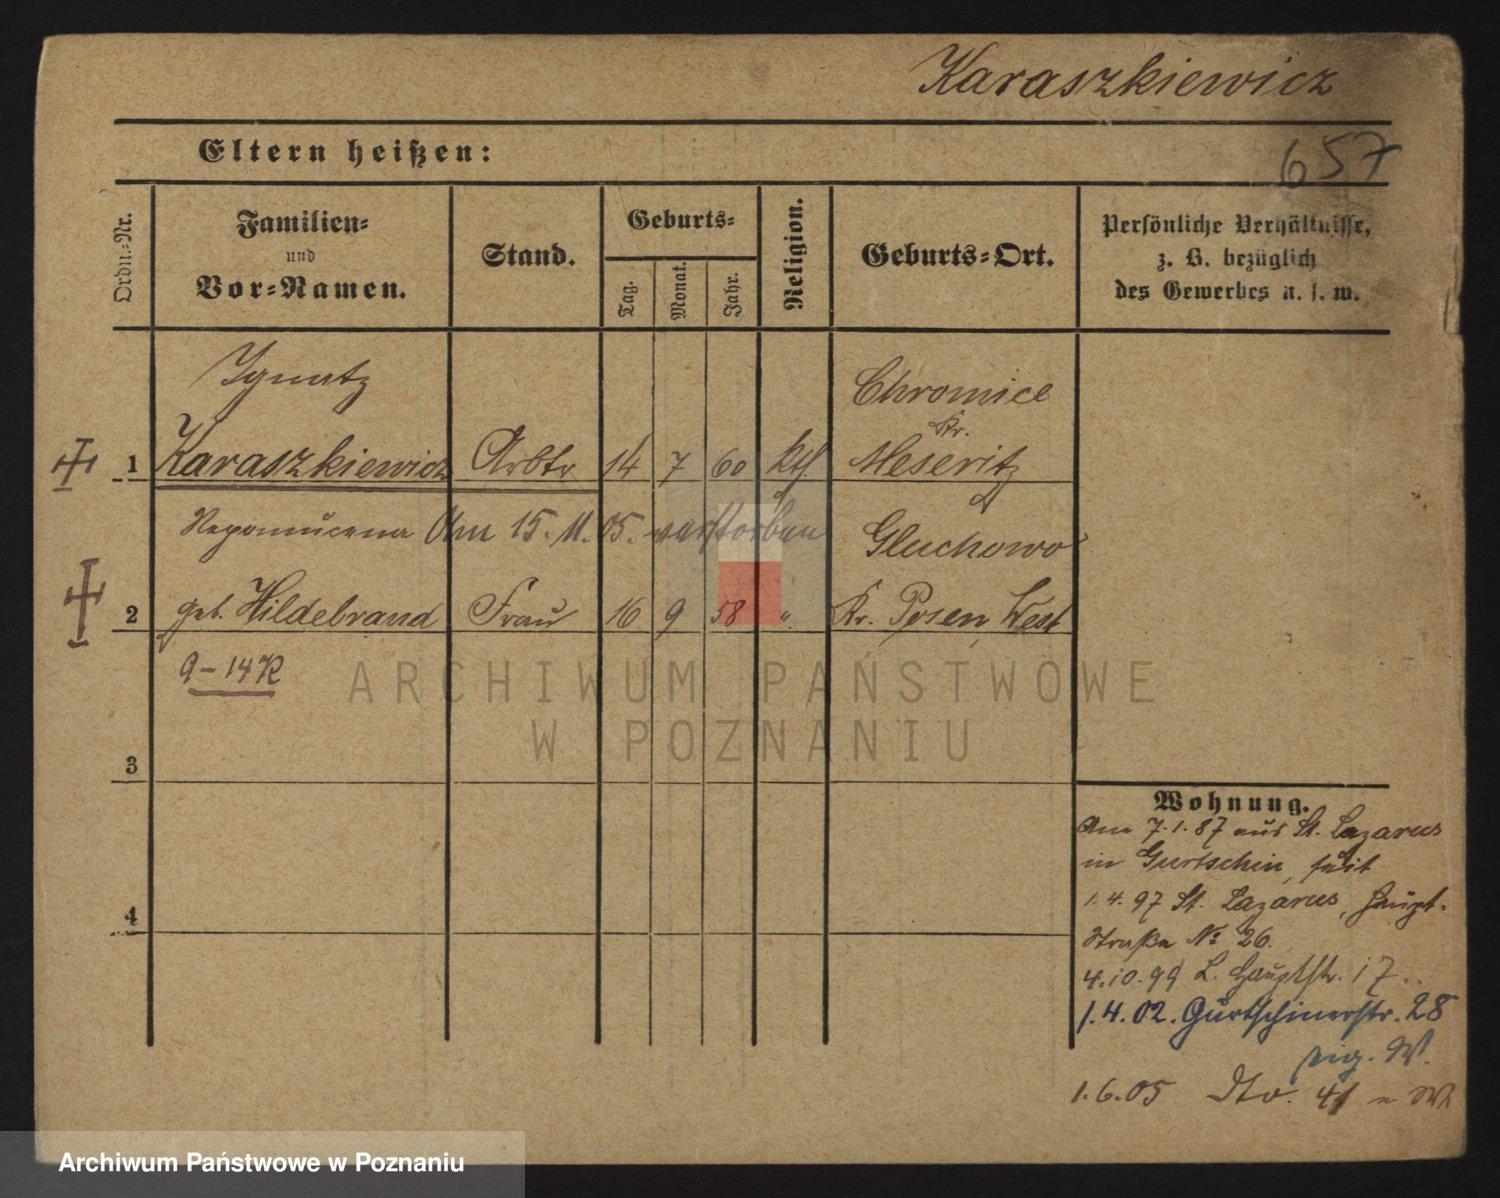 Karaszkiewicz
657
Eltern heißen:
Ordn.-Nr.
Familien-
und
Vor-Namen.
Stand.
Geburts-
Tag.
Monat.
Jahr.
Religion.
Geburts-Ort.
Persönliche Verhältnisse,
z. B. bezüglich
des Gewerbes u. s. w.
Ignatz
Chromice
Kr.
1 Karaszkiewicz Arbtr 14 7 60 kth. Meseritz
Nepomucena Am 15. 11. 05. verstorben
Gluchowo
2 geb. Hildebrand Frau 16 9 58 ". Kr. Posen West
9-14 K
ARCHIWUM PAŃSTWOWE
W POZNANIU
3
4
Wohnung.
Am 7.1.87 aus St. Lazarus
in Gurtschin, seit
1.4.97 St. Lazarus, Haupt-
Straße № 26.
4.10.99 L. Hauptstr. 17..
1.4.02. Gurtschinerstr. 28
eig. W.
1.6.05 Dto. 41
Archiwum Państwowe w Poznaniu